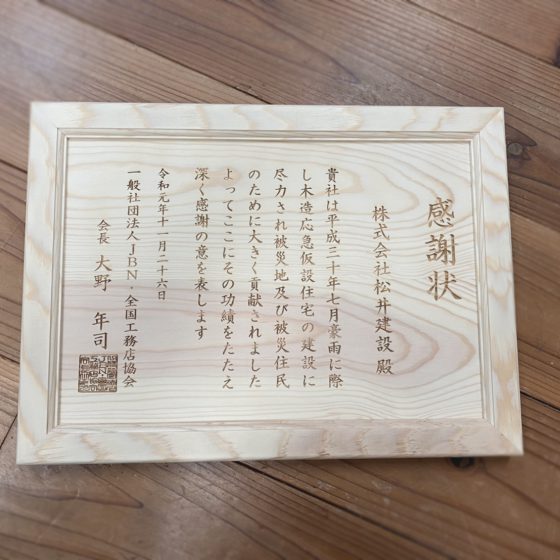 感謝状
株式会社松井建設 殿
貴社は平成三十年七月豪雨に際
し木造応急仮設住宅の建設に
尽力され被災地及び被災住民
のために大きく貢献されました
よってここにその功績をたたえ
深く感謝の意を表します
令和元年十一月二十六日
一般社団法人JBN・全国工務店協会
会長 大野 年司